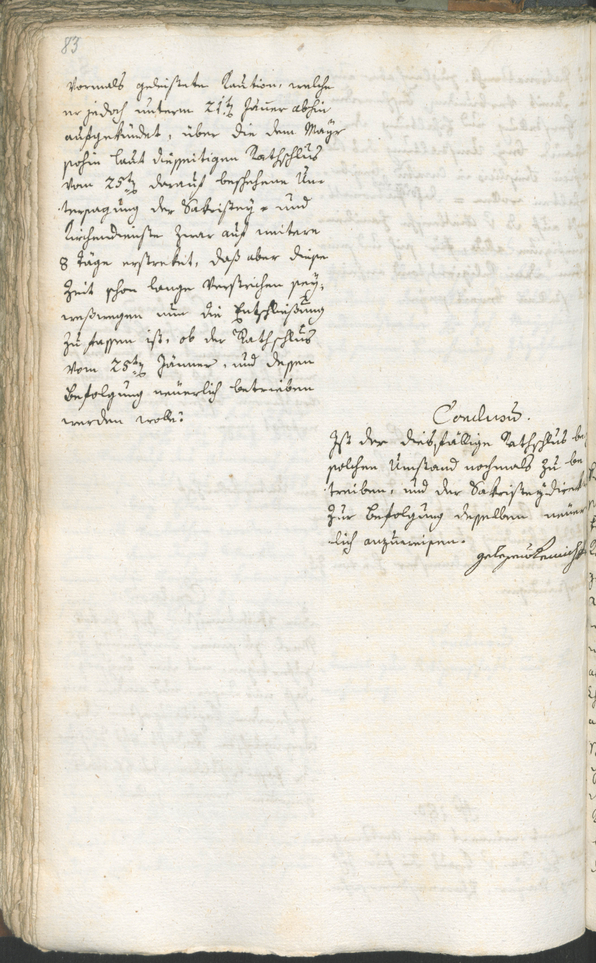 83
vormals geleistete Kaution, welche
er jedoch unterm 21ten Jäner abhin
aufgekündet, über die dem Mayr
sohin laut diesseitigen Rathschlus
vom 25ten darauf beschehene Un-
tersagung der Sakristey- und
Kirchendienste zwar auf weitere
8 Täge erstrekt, daß aber diese
Zeit schon lange verstrichen sey,
weßwegen nun die Entschließung
zu fassen ist, ob der Rathschlus
vom 25ten Jänner, und dessen
Befolgung neuerlich betrieben
werden wolle?
Conclusum.
Ist der diesfällige Rathschlus be
solchen Umstand nochmals zu be
treiben, und der Sakristeydirect
zur Befolgung desselben neuer
lich anzuweisen.